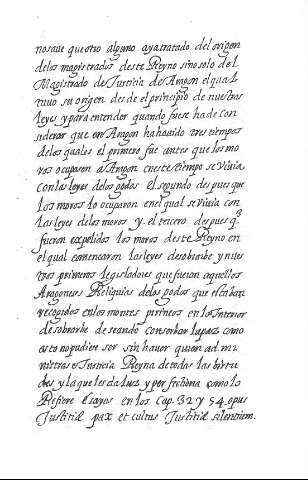 nosave que otro alguno aya tratado del origen
delos magistrados deste Reyno sino solo del
Magistrado de Justicia de Aragon el qual
tuuo su origen desde el principio de nuestras
leyes y para entender quando fuese ha de con
siderar que en Aragon ha hauido tres tiempos
delos quales el primero fue antes que los mo
ros ocuparon a Aragon en este tiempo se viuia
con las leyes delos godos el segundo despues que
los moros lo ocuparon en el qual se viuia con
las leyes delos moros y el tercero despues q̃
fueron expelidos los moros deste Reyno en
el qual comencaron las leyes de sobrarbe y nues
tros primeros legisladores que fueron aquellos
Aragoneses Reliquias delos godos que estaban
recogidos en los montes pirineos en lo Interior
de sobrarbe deseando conserbar la paz como
esto no pudiese ser sin hauer quien ad mi
nistrase Justicia Reyna de todas las birtu
des y la que les da luz y perfictiona como lo
Refiere Esayas en los cap. 32 y 54 opus
Justitiæ pax et cultus Justitiæ silentium.